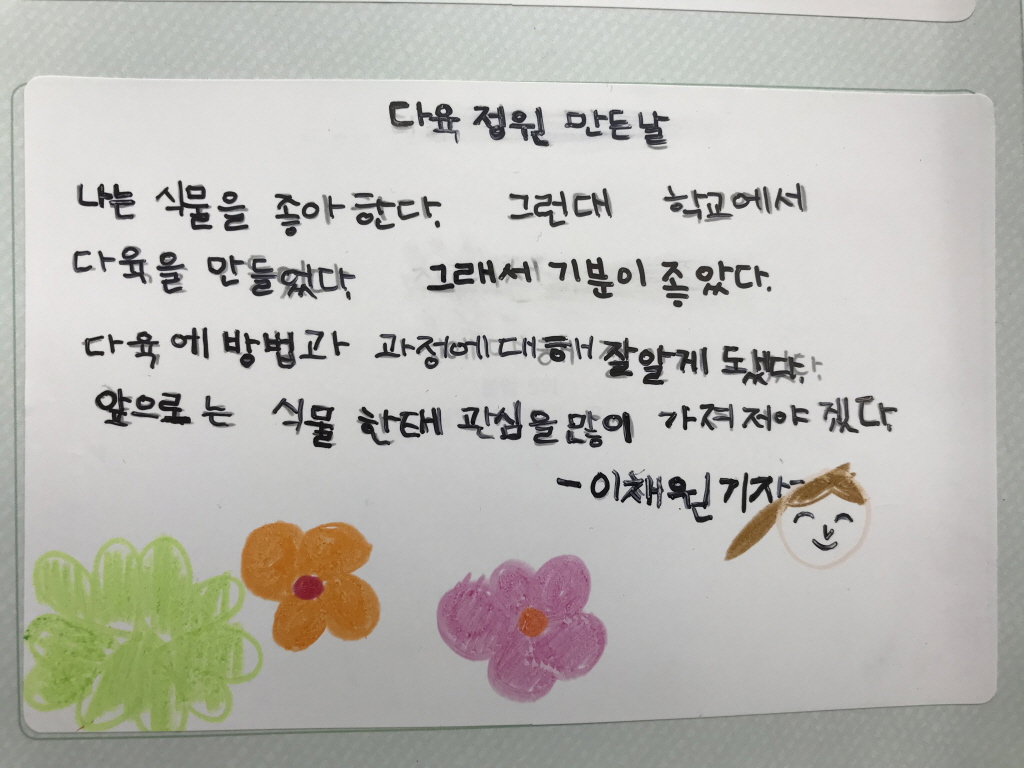 다육 정원 만든날
나는 식물을 좋아 한다. 그런대 학교에서
다육을 만들었다. 그래서 기분이 좋았다.
다육에 방법과 과정에대해 잘알게 됐다.
앞으로는 식물 한태 관심을많이 가져저야 겠다
-이채원기자-